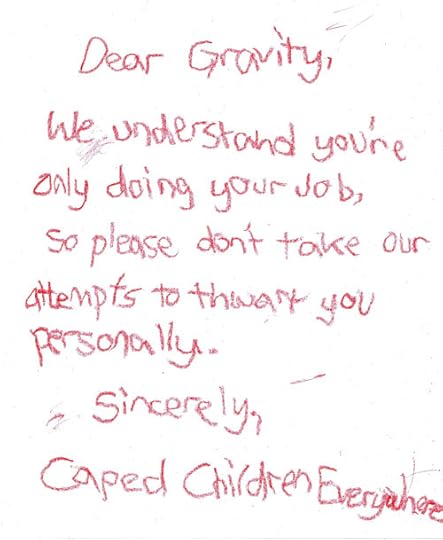 Dear Gravity,
We understand you're
only doing your job,
so please don't take our
attempts to thwart you
personally.
Sincerely,
Caped Children Everywhere